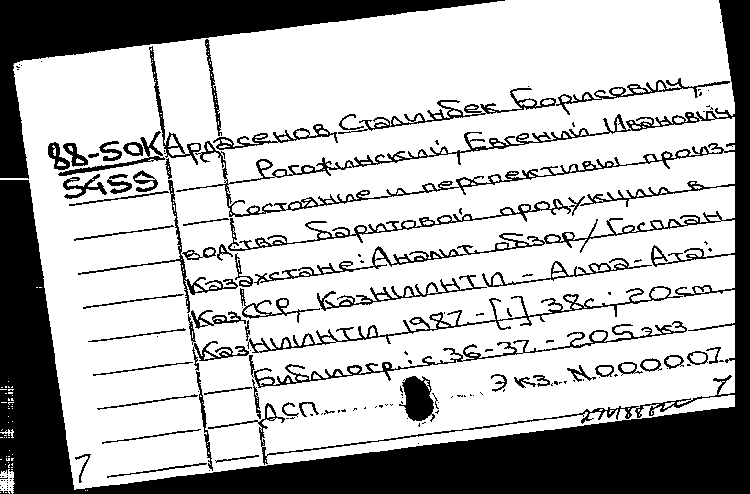 88-50К Ардасенов, Сталинбек Борисович,
5459 Рогожинский, Евгений Иванович.
Состояние и перспективы произ-
водства баритовой продукции в
Казахстане: Аналит. обзор / Госплан
КазССР, КазНИИНТИ. - Алма-Ата:
КазНИИНТИ, 1987. - [1], 38с.; 20см.
Библиогр.: с. 36-37. - 205 экз.
ДСП. Экз. N000007.
7
7